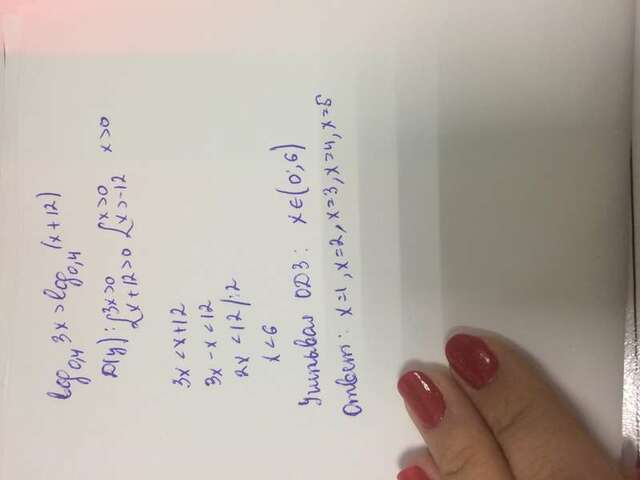 log₀,₄ 3x > log₀,₄ (x+12)
D(y): { 3x>0 { x>0 x>0
x+12>0 x>-12
3x < x+12
3x - x < 12
2x < 12 /:2
x < 6
Учитывая ОДЗ: x∈(0;6)
Ответ: x=1, x=2, x=3, x=4, x=5